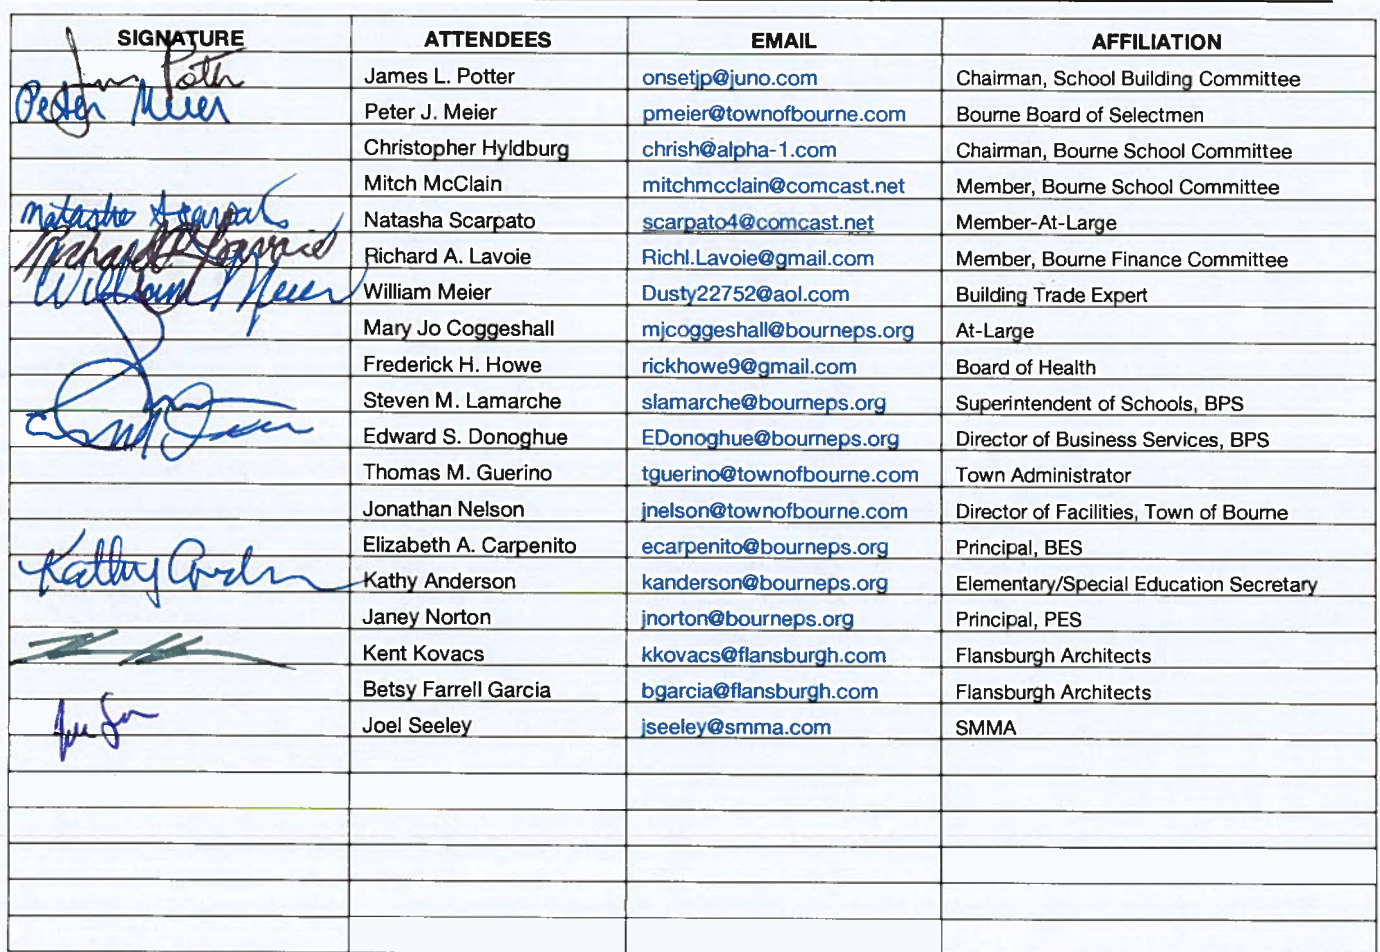 SIGNATURE ATTENDEES EMAIL AFFILIATION
James L. Potter onsetjp@juno.com Chairman, School Building Committee
Peter Meier Peter J. Meier pmeier@townofbourne.com Bourne Board of Selectmen
Christopher Hyldburg chrish@alpha-1.com Chairman, Bourne School Committee
Mitch McClain mitchmcclain@comcast.net Member, Bourne School Committee
Natasha Scarpato Natasha Scarpato scarpato4@comcast.net Member-At-Large
Richard A. Lavoie Richard A. Lavoie Richl.Lavoie@gmail.com Member, Bourne Finance Committee
William Meier William Meier Dusty22752@aol.com Building Trade Expert
Mary Jo Coggeshall mjcoggeshall@bourneps.org At-Large
Frederick H. Howe rickhowe9@gmail.com Board of Health
Steven M. Lamarche slamarche@bourneps.org Superintendent of Schools, BPS
Edward S. Donoghue EDonoghue@bourneps.org Director of Business Services, BPS
Thomas M. Guerino tguerino@townofbourne.com Town Administrator
Jonathan Nelson jnelson@townofbourne.com Director of Facilities, Town of Bourne
Elizabeth A. Carpenito ecarpenito@bourneps.org Principal, BES
Kathy Kathy Anderson kanderson@bourneps.org Elementary/Special Education Secretary
Janey Norton jnorton@bourneps.org Principal, PES
Kent Kovacs kkovacs@flansburgh.com Flansburgh Architects
Betsy Farrell Garcia bgarcia@flansburgh.com Flansburgh Architects
Joel Seeley jseeley@smma.com SMMA